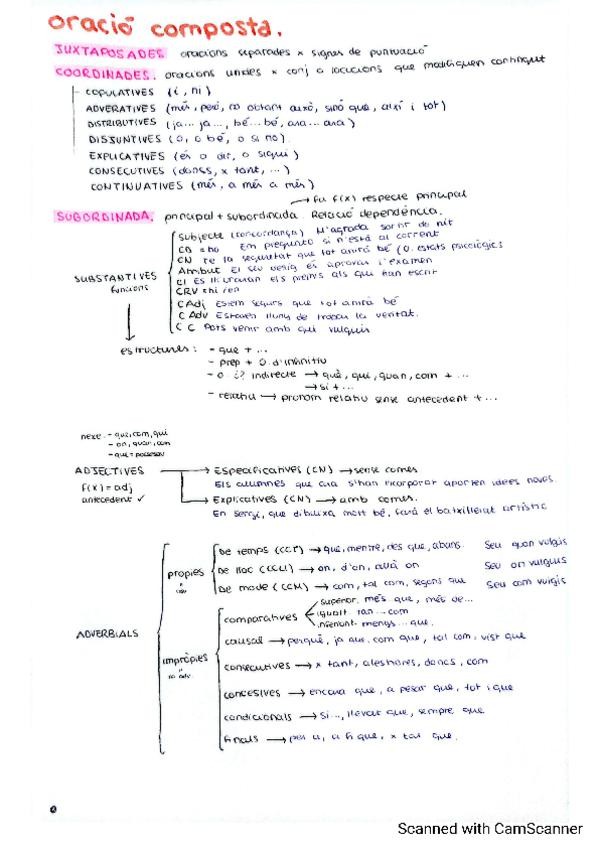 oració composta.
JUXTAPOSADES oracions separades x signes de puntuació
COORDINADES. oracions unides x conj o locucions que modifiquen contingut
COPULATIVES (i, ni)
ADVERATIVES (més, però, no obtant això, sinó que, així i tot)
DISTRIBUTIVES (ja... ja..., bé... bé, ara... ara)
DISJUNTIVES (o, o bé, o si no)
EXPLICATIVES (és a dir, o sigui)
CONSECUTIVES (doncs, x tant, ...)
CONTINUATIVES (més, a més a més)
→ fu f(x) respecte principal
SUBORDINADA. principal + subordinada. Relació dependència.
SUBSTANTIVES
funcions
Subjecte (concordança) M'agrada sortir de nit
CD = ho Em pregunto si n'està al corrent
CN Té la seguretat que tot anirà bé (o. estats psicològics
Atribut El seu desig és aprovar l'examen
CI Es lliuraran els premis als que han escrit
CRV
C Adj Estem segurs que tot anirà bé
C Adv Estaven lluny de trobar la veritat.
C C Pots venir amb qui vulguis
estructures: - que + ...
- prep + o. d'infinitiu
- o. i? indirecte → què, qui, quan, com + ...
→ si + ...
- relatiu → pronom relatiu sense antecedent + ...
nexe - que, com, qui
- on, quan, com
- que = possessiu
ADJECTIVES
f(x) = adj
antecedent ✓
→ Especificatives (CN) → sense comes
Els alumnes que ara s'han incorporat aporten idees noves.
→ Explicatives (CN) → amb comes.
En Sergi, que dibuixa molt bé, farà el batxillerat artístic
ADVERBIALS
pròpies
De temps (CCT) → que, mentre, des que, abans. Seu quan vulgis
De lloc (CCLl) → on, d'on, allà on Seu on vulguis
De mode (CCM) → com, tal com, segons que Seu com vulgis
impròpies
no adv.
comparatives
superior. més que, més de...
igualt tan... com
menys... que.
causal → perquè, ja que, com que, tal com, vist que
consecutives → x tant, aleshores, doncs, com
concesives → encara que, a pesar que, tot i que
condicionals → si..., llevat que, sempre que
finals → per a, a fi que, x tal que.
Scanned with CamScanner